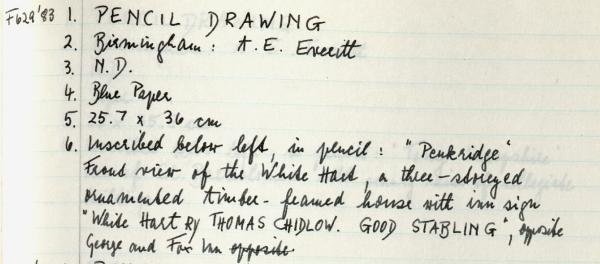 F629'83 1. PENCIL DRAWING
2. Birmingham: A. E. Everitt
3. N.D.
4. Blue Paper
5. 25.7 x 36 cm
6. Inscribed below left, in pencil: "Penkridge"
Front view of the White Hart, a three-storeyed
ornamented timber-framed house with inn sign
"White Hart By THOMAS CHIDLOW. GOOD STABLING", opposite
George and Fox Inn opposite